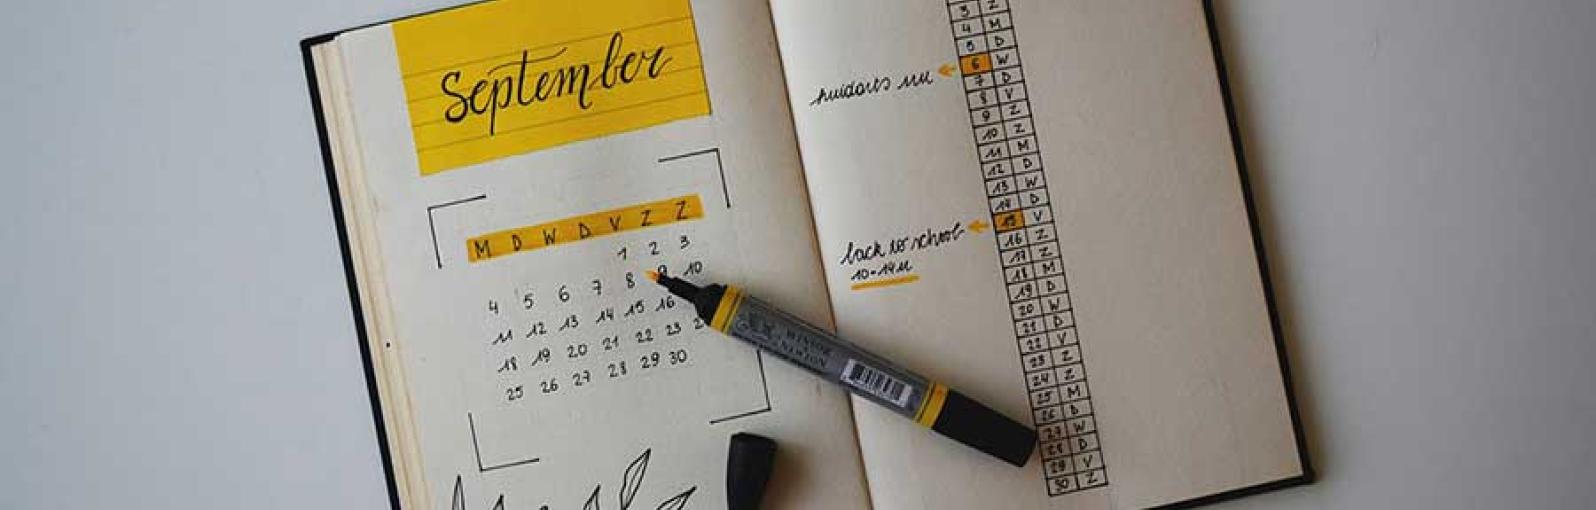 September
M D W D V Z Z
1 2 3
4 5 6 7 8 9 10
11 12 13 14 15 16
18 19 20 21 22 23 2
25 26 27 28 29 30
WINSOR
& NEWTON
3 Z
4 M
5 D
6 W
7 D
8 V
9 Z
10 Z
11 M
12 D
13 W
14 D
15 V
back to school
10-14u
16 Z
17 Z
18 M
19 D
20 W
21 D
22 V
23 Z
24 Z
25 M
26 D
27 W
28 D
29 V
30 Z